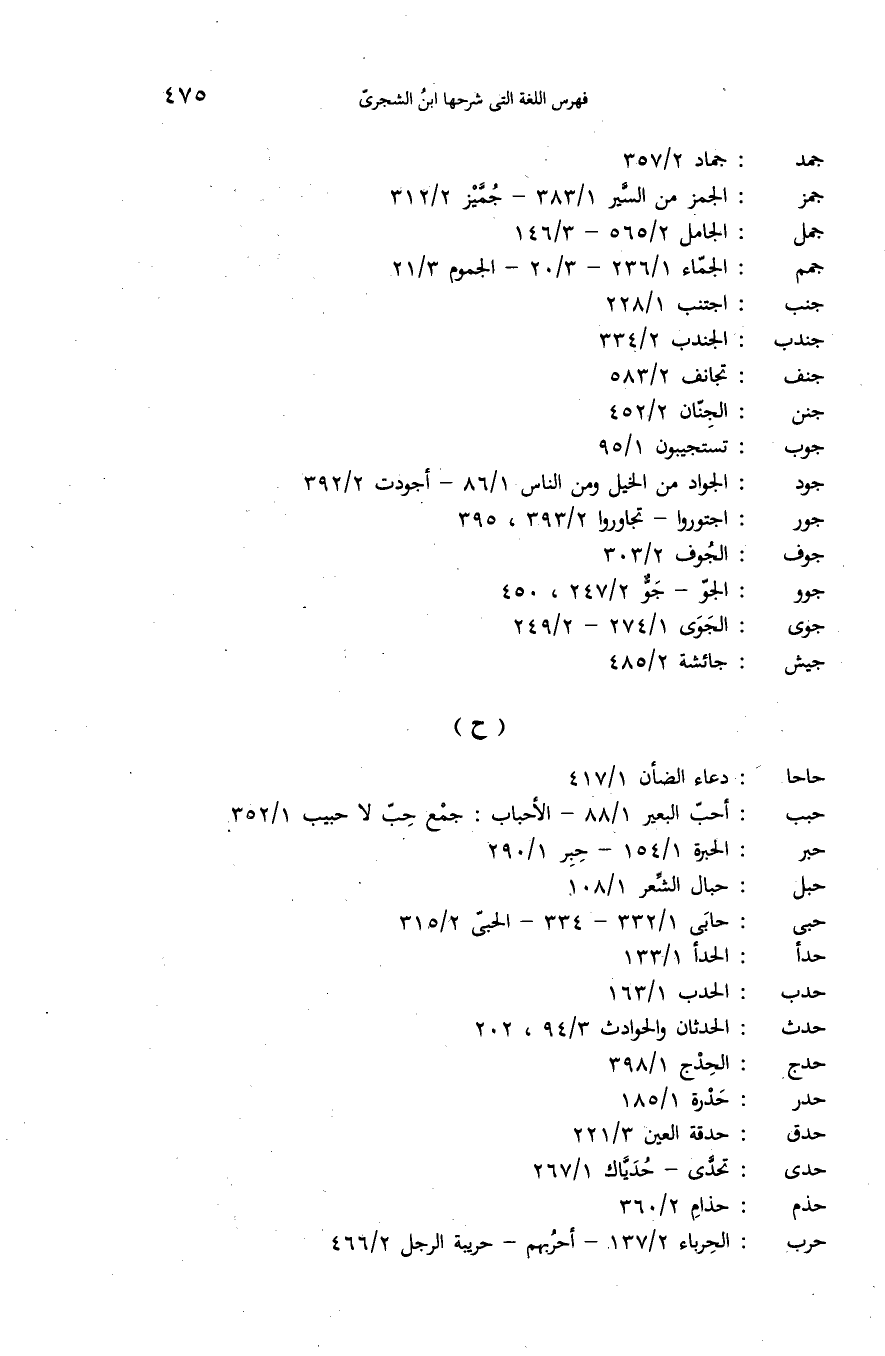 فهرس اللغة التى شرحها ابنُ الشجرىّ ٤٧٥
جمد : جماد ٣٥٧/٢
جمز : الجمز من السَّير ٣٨٣/١ – جُمَّيْز ٣١٢/٢
جمل : الجامل ٥٦٥/٢ – ١٤٦/٣
جمم : الجمّاء ٢٣٦/١ – ٢٠/٣ – الجموم ٢١/٣
جنب : اجتنب ٢٢٨/١
جندب : الجندب ٣٣٤/٢
جنف : تجانف ٥٨٣/٢
جنن : الجِنّان ٤٥٢/٢
جوب : تستجيبون ٩٥/١
جود : الجواد من الخيل ومن الناس ٨٦/١ – أجودت ٣٩٢/٢
جور : اجتوروا – تجاوروا ٣٩٣/٢ ، ٣٩٥
جوف : الجُوف ٣٠٣/٢
جوو : الجوّ – جَوٌّ ٢٤٧/٢ ، ٤٥٠
جوى : الجَوَى ٢٧٤/١ – ٢٤٩/٢
جيش : جائشة ٤٨٥/٢
( ح )
حاحا : دعاء الضأن ٤١٧/١
حبب : أحبّ البعير ٨٨/١ – الأحباب : جمْع حِبّ لا حبيب ٣٥٢/١
حبر : الحبرة ١٥٤/١ – حِبِر ٢٩٠/١
حبل : حبال الشَّعر ١٠٨/١
حبى : حابَى ٣٣٢/١ – ٣٣٤ – الحبىّ ٣١٥/٢
حدأ : الحدأ ١٣٣/١
حدب : الحدب ١٦٣/١
حدث : الحدثان والحوادث ٩٤/٣ ، ٢٠٢
حدج : الحِدْج ٣٩٨/١
حدر : حَدْرة ١٨٥/١
حدق : حدقة العين ٢٢١/٣
حدى : تحدَّى – حُدَيَّاك ٢٦٧/١
حذم : حذامِ ٣٦٠/٢
حرب : الحِرباء ١٣٧/٢ – أحرُبهم – حريبة الرجل ٤٦٦/٢